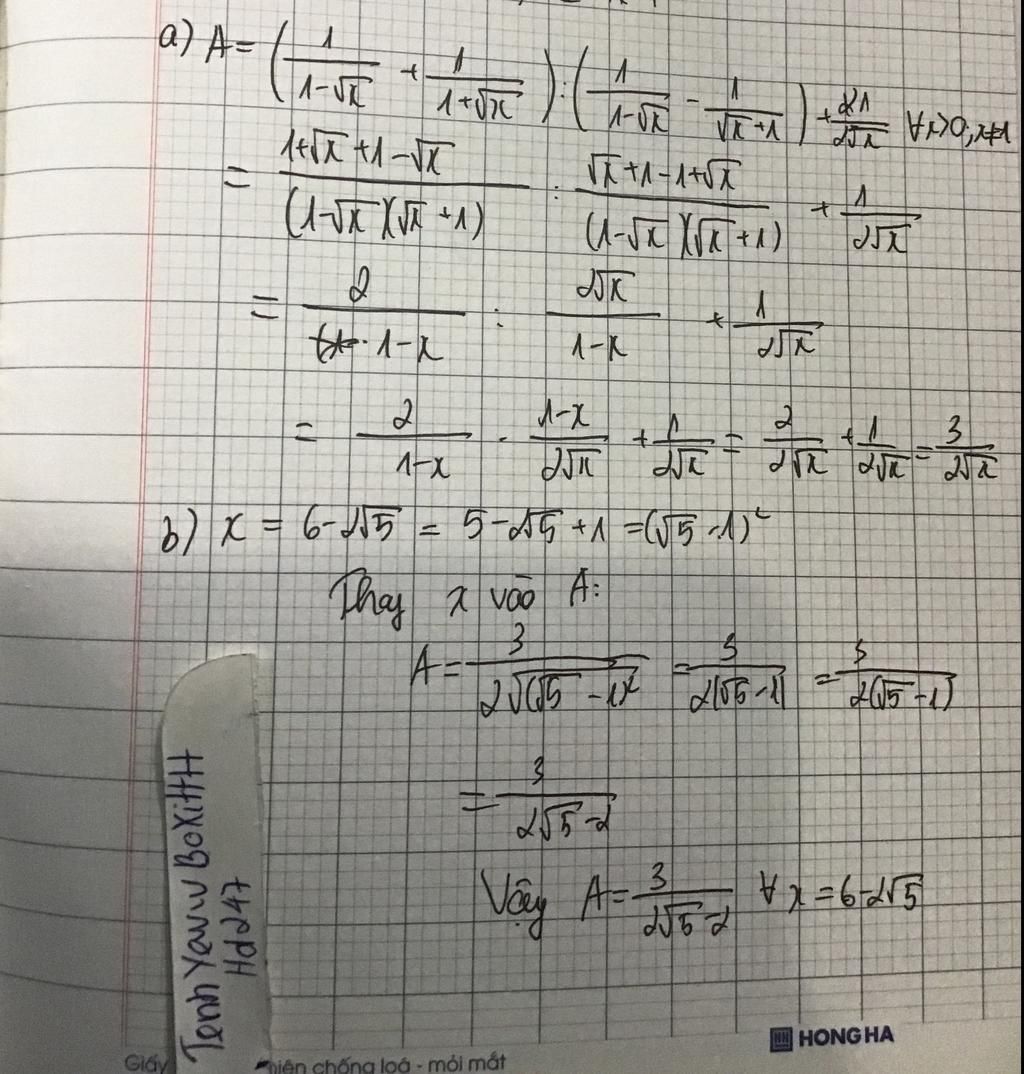 a) A = (1/(1-√x) + 1/(1+√x)) : (1/(1-√x) - 1/(√x+1)) + 1/(2√x) ∀x>0, x≠1
= (1+√x+1-√x)/((1-√x)(√x+1)) : (√x+1-1+√x)/((1-√x)(√x+1)) + 1/(2√x)
= 2/(1-x) : 2√x/(1-x) + 1/(2√x)
= 2/(1-x) . (1-x)/(2√x) + 1/(2√x) = 2/(2√x) + 1/(2√x) = 3/(2√x)
b) x = 6-2√5 = 5-2√5+1 = (√5-1)²
Thay x vào A:
A = 3/(2√(√5-1)²) = 3/(2|√5-1|) = 3/(2(√5-1))
= 3/(2√5-2)
Vậy A = 3/(2√5-2) ∀ x = 6-2√5
Hd247
HH HONG HA
Giấy
chống loá - mỏi mắt